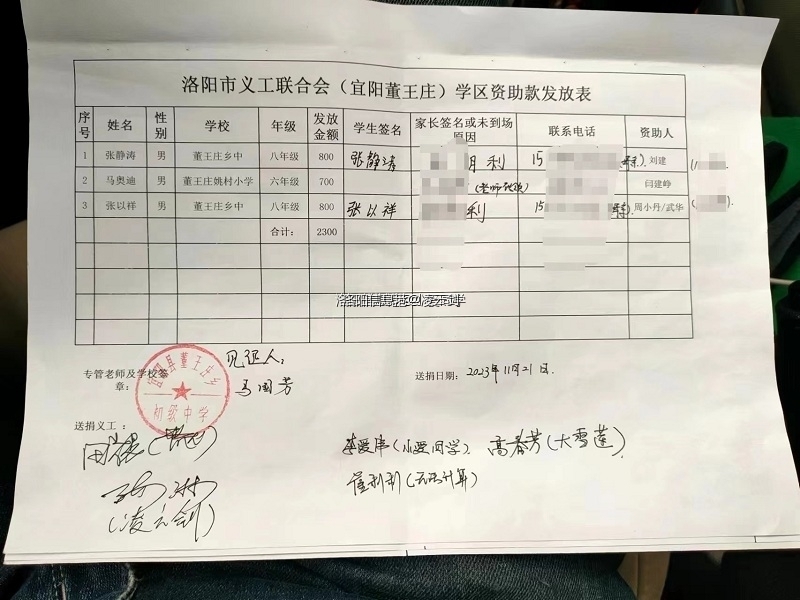 洛阳市义工联合会（宜阳董王庄）学区资助款发放表
序号 姓名 性别 学校 年级 发放金额 学生签名 家长签名或未到场原因 联系电话 资助人
1 张静涛 男 董王庄乡中 八年级 800 张静涛 月利 15 刘建
2 马奥迪 男 董王庄姚村小学 六年级 700 闫建峥
3 张以祥 男 董王庄乡中 八年级 800 张以祥 利 15 周小丹/武华
合计： 2300
专管老师及学校签章： 宜阳县董王庄乡初级中学 见证人： 马国芳
送捐日期： 2023年11月21日.
送捐义工：
(小爱同学). 高春芳(大雪莲)
(凌云剑)